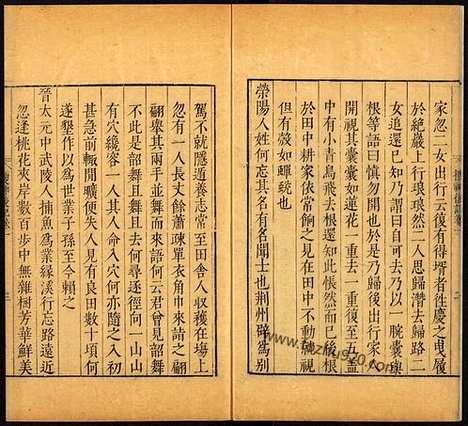 家忽二女出行云復有得壻者往慶之曳履
於絶巖上行琅琅然二人思歸潛去歸路二
女追還已知乃謂曰自可去乃以一腕囊與
根等語曰愼勿開也於是乃歸後出行家人
開視其囊囊如蓮花一重去一重復至五盖
中有小青鳥飛去根還知此悵然而已後根
於田中耕家依常餉之見在田中不動就視
但有殼如蟬蛻也
滎陽人姓何忘其名有名聞士也荆州辟爲别
駕不就隱遁養志常至田舍人收穫在場上
忽有一人長丈餘蕭疎單衣角巾來詣之翩
翩舉其兩手並舞而來語何云君曾見韶舞
不此是韶舞且舞且去何尋逐徑向一山山
有穴纔容一人其人命入穴何亦隨之入初
甚急前輒閒曠便失人見有良田數十頃何
遂墾作以爲世業子孫至今賴之
晉太元中武陵人捕魚爲業緣溪行忘路遠近
忽逢桃花夾岸數百步中無雜樹芳華鮮美